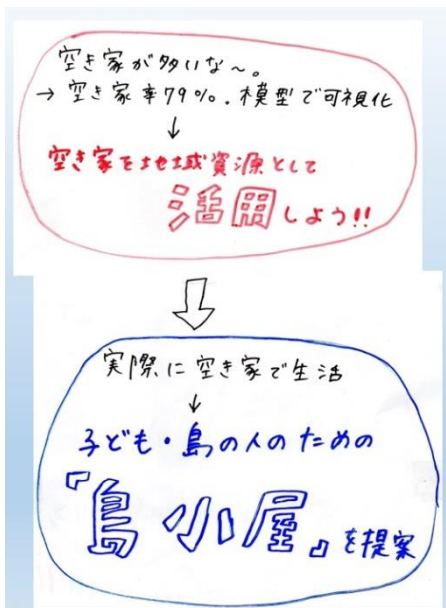 空き家が多いな～。
→ 空き家率79%. 模型で可視化
↓
空き家を地域資源として
活用しよう!!
実際に空き家で生活
↓
子ども・島の人のための
『島小屋』を提案